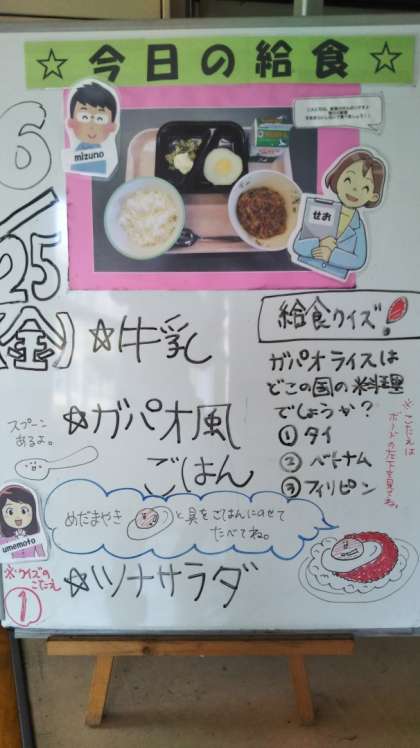 ☆今日の給食☆
mizuno
せお
6/25
【金】
☆牛乳
☆ガパオ風
ごはん
スプーン
あるよ。
めだまやき と具をごはんにのせて
たべてね。
umemoto
☆ツナサラダ
給食クイズ!
ガパオライスは
どこの国の料理
でしょうか?
①タイ
②ベトナム
③フィリピン
※こたえは
ボードの左下を見てね。
※クイズの
こたえ
①